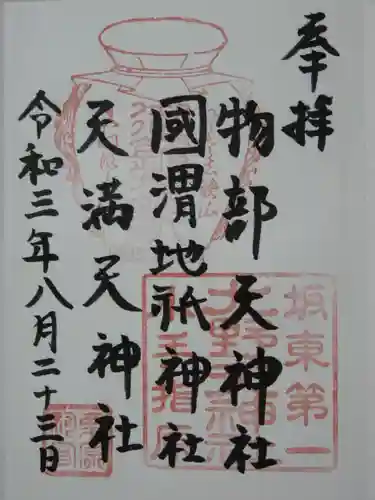 奉拝
物部天神社
國渭地祇神社
天満天神社
令和三年八月二十三日
坂東第一